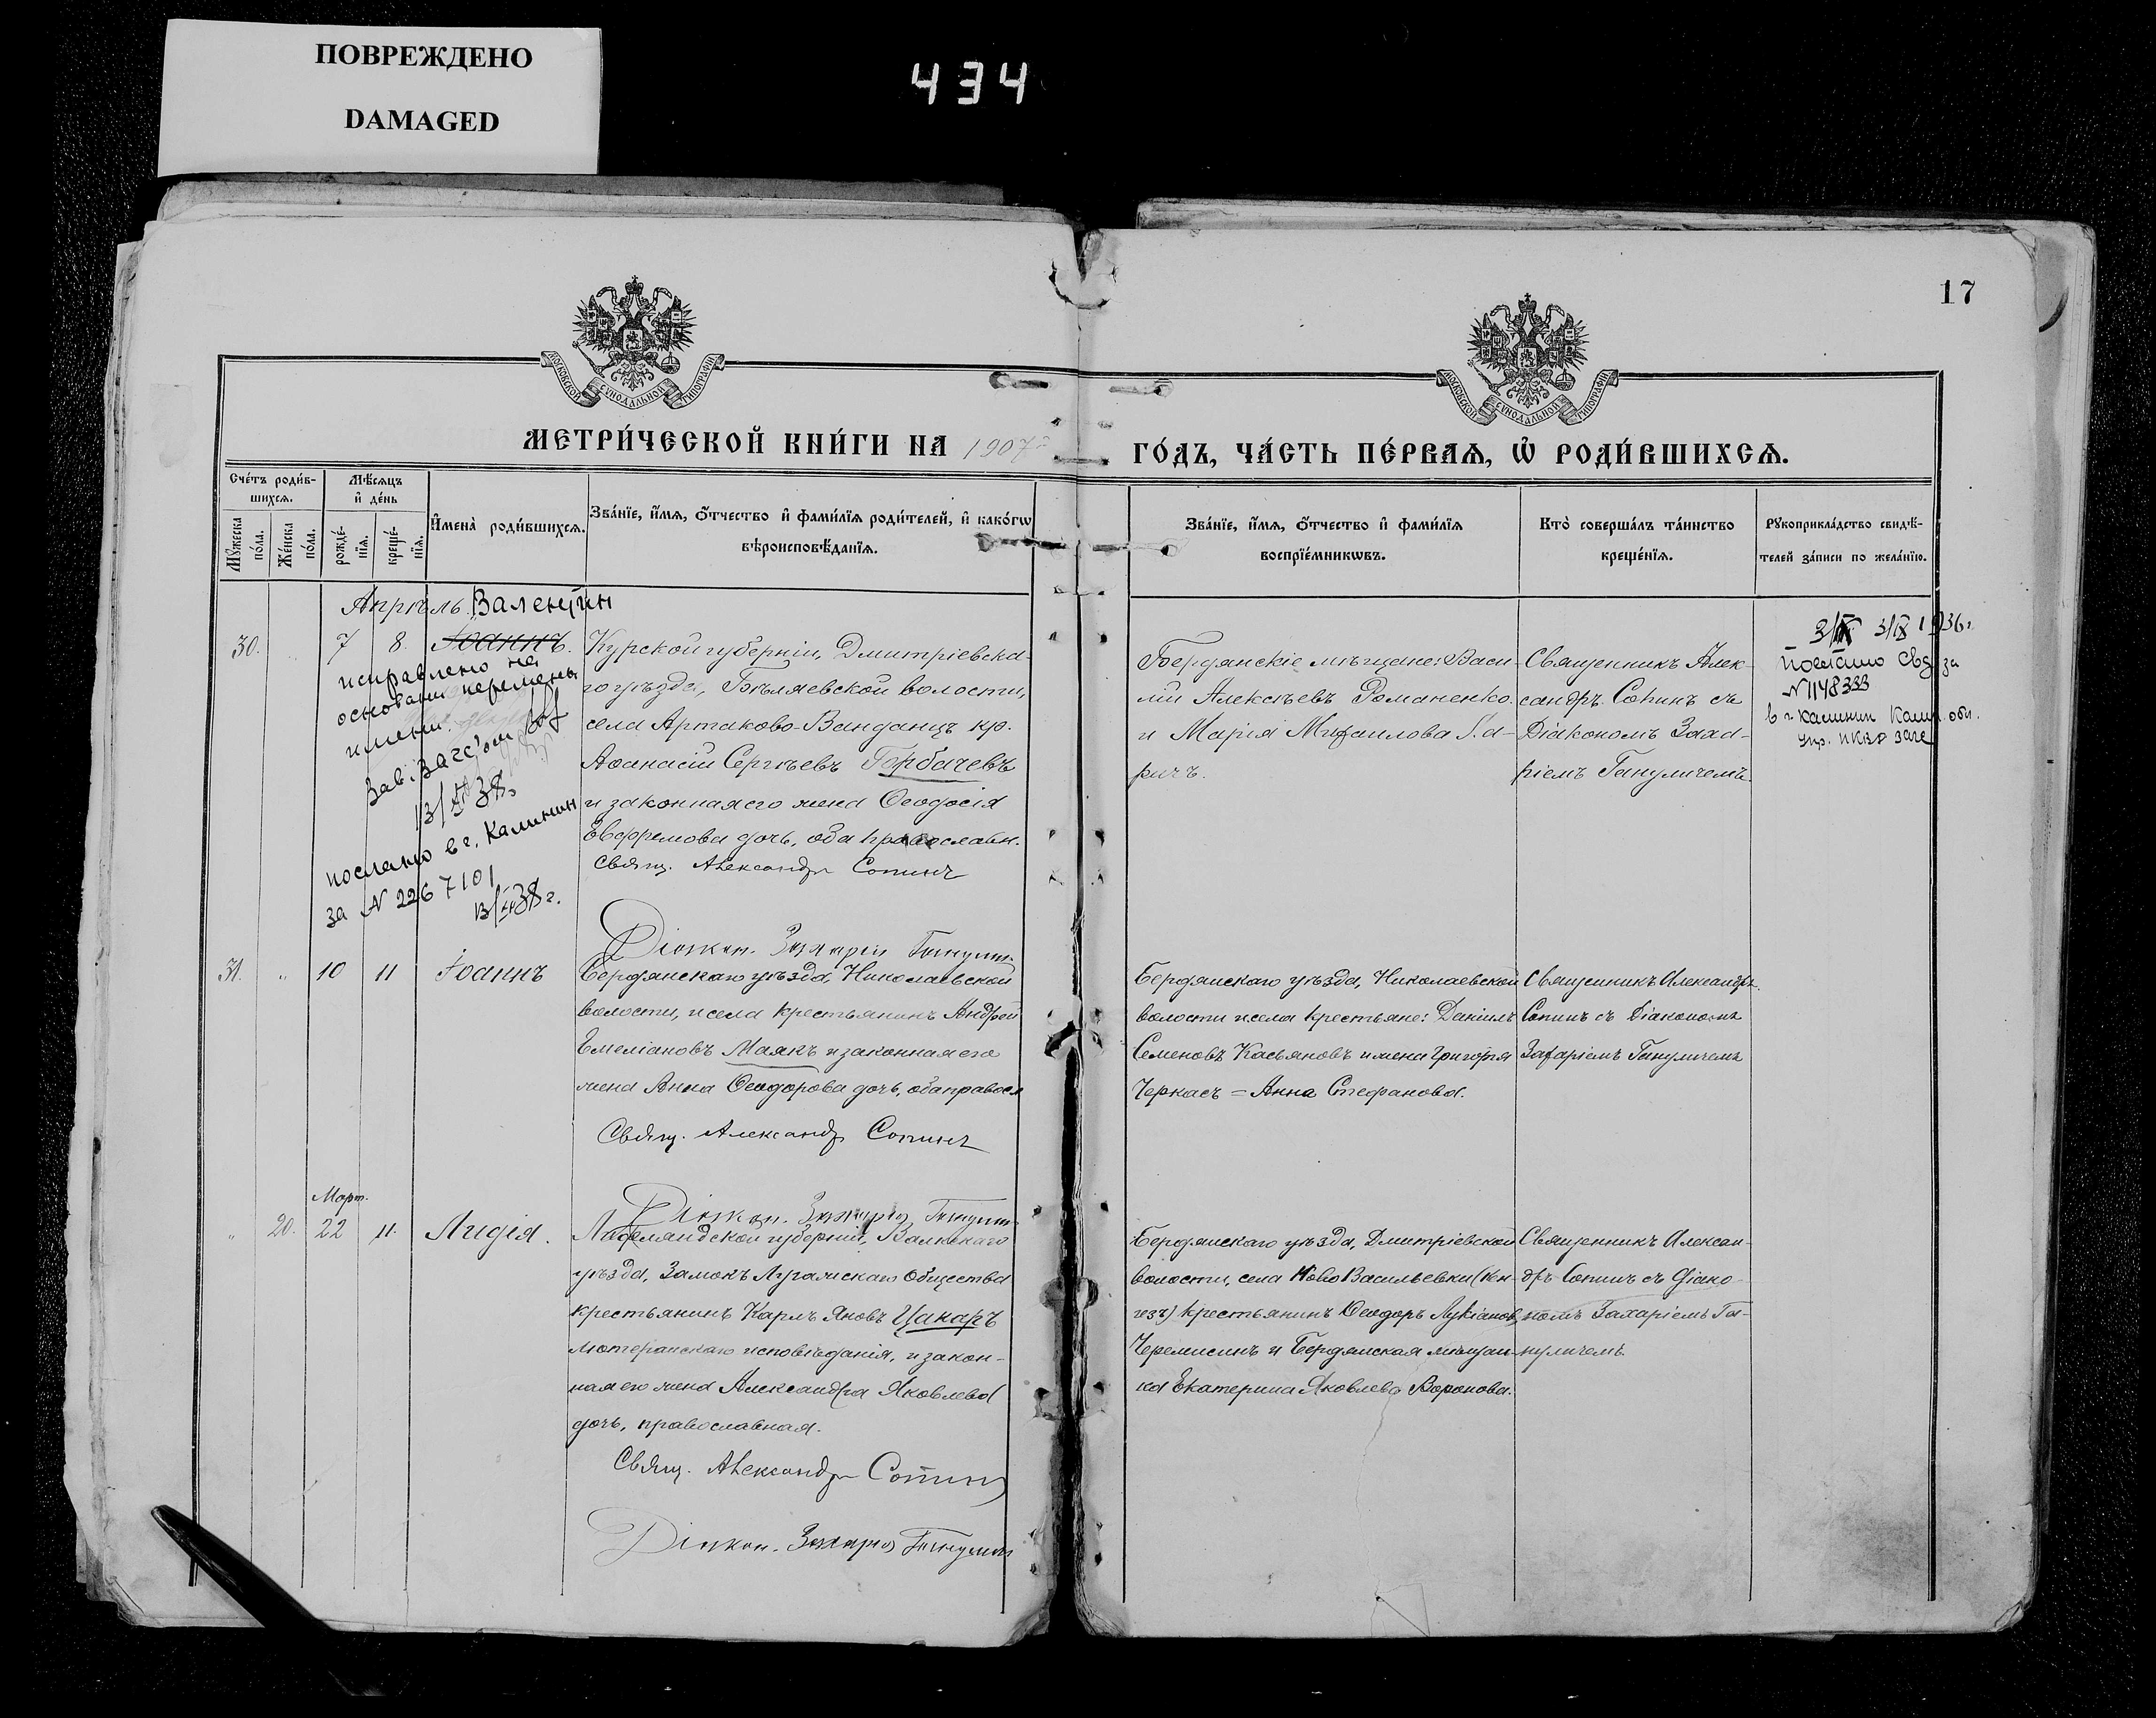 ПОВРЕЖДЕНО
DAMAGED
434
17
МОСКОВСКОЙ СѴНОДАЛЬНОЙ ТИПОГРАФІИ
МОСКОВСКОЙ СѴНОДАЛЬНОЙ ТИПОГРАФІИ
МЕТРИ́ЧЕСКОЙ КНИ́ГИ НА 1907
ГО́ДЪ, ЧА́СТЬ ПЕ́РВАѦ, Ѡ҆ РОДИ́ВШИХСѦ.
Сче́тъ роди́в-
шихсѧ.
Мꙋ́жеска
по́ла.
Же́нска
по́ла.
Мѣ́сѧцъ
и҆ де́нь
рожде́-
нїѧ.
креще́-
нїѧ.
И҆мена̀ роди́вшихсѧ.
Зва́нїе, и҆́мѧ, ѻ҆́тчество и҆ фами́лїѧ роди́телей, и҆ како́гѡ
вѣроисповѣ́данїѧ.
Зва́нїе, и҆́мѧ, ѻ҆́тчество и҆ фами́лїѧ
воспрїе́мникѡвъ.
Кто̀ соверша́лъ та́инство
креще́нїѧ.
Рꙋкоприкла́дство свидѣ́-
телей за́писи по жела́нїю.
Апрѣль. Валентин
30. 7 8. Іоаннъ.
исправлено на
основании перемены
имени.
Зав. Загсом
13/ 38
послано в г. Калинин
за N 2267101
13/ 38 г.
Курской губерніи, Дмитріевска-
го уѣзда, волости,
села Артаково-Ванданцъ кр.
Аѳанасій Сергѣевъ Горбачевъ
и законная его жена Ѳеодосія
Евфремова дочь, оба православн.
Свящ. Александръ Сопинъ
Діакон. Захарія
Бердянскіе мѣщане: Васи-
лій Алексѣевъ Романенко.
и Марія Михаилова
ричъ.
Священникъ Алек-
сандръ Сопинъ съ
Діакономъ Заха-
ріемъ Гануличемъ.
3/IX 1936 г.
послано Свд за
N 1148333
в г Калинин Калин. обл.
упр. НКВД загс
31. " 10 11 Іоаннъ
Бердянскаго уѣзда, Николаевской
волости, и села крестьянинъ Андрей
Емеліановъ Маякъ и законная его
жена Анна Ѳеодорова дочь, оба правосл
Свящ. Александръ Сопинъ
Діакон. Захарія
Бердянскаго уѣзда, Николаевской
волости и села крестьяне: Даніилъ
Семеновъ Касьяновъ и жена Григорія
Черкасъ = Анна Стефанова.
Священникъ Александръ
Сопинъ съ Діакономъ
Захаріемъ Гануличемъ
Март.
" 20. 22 11. Лидія.
Лифляндской губерніи, Валкскаго
уѣзда, Замокъ общества
крестьянинъ Карлъ Яновъ Цакаръ
лютеранскаго исповѣданія, и закон-
ная его жена Александра Яковлева
дочь, православная.
Свящ. Александръ Сопинъ
Діакон. Захарія
Бердянскаго уѣзда, Дмитріевской
волости, села Ново Васильевки (Кен-
гезъ) крестьянинъ Ѳеодоръ Лукіановъ
Черемисинъ и Бердянская мѣщан-
ка Екатерина Яковлева Воронова.
Священникъ Алексан-
дръ Сопинъ съ Діако-
номъ Захаріемъ Га-
нуличемъ